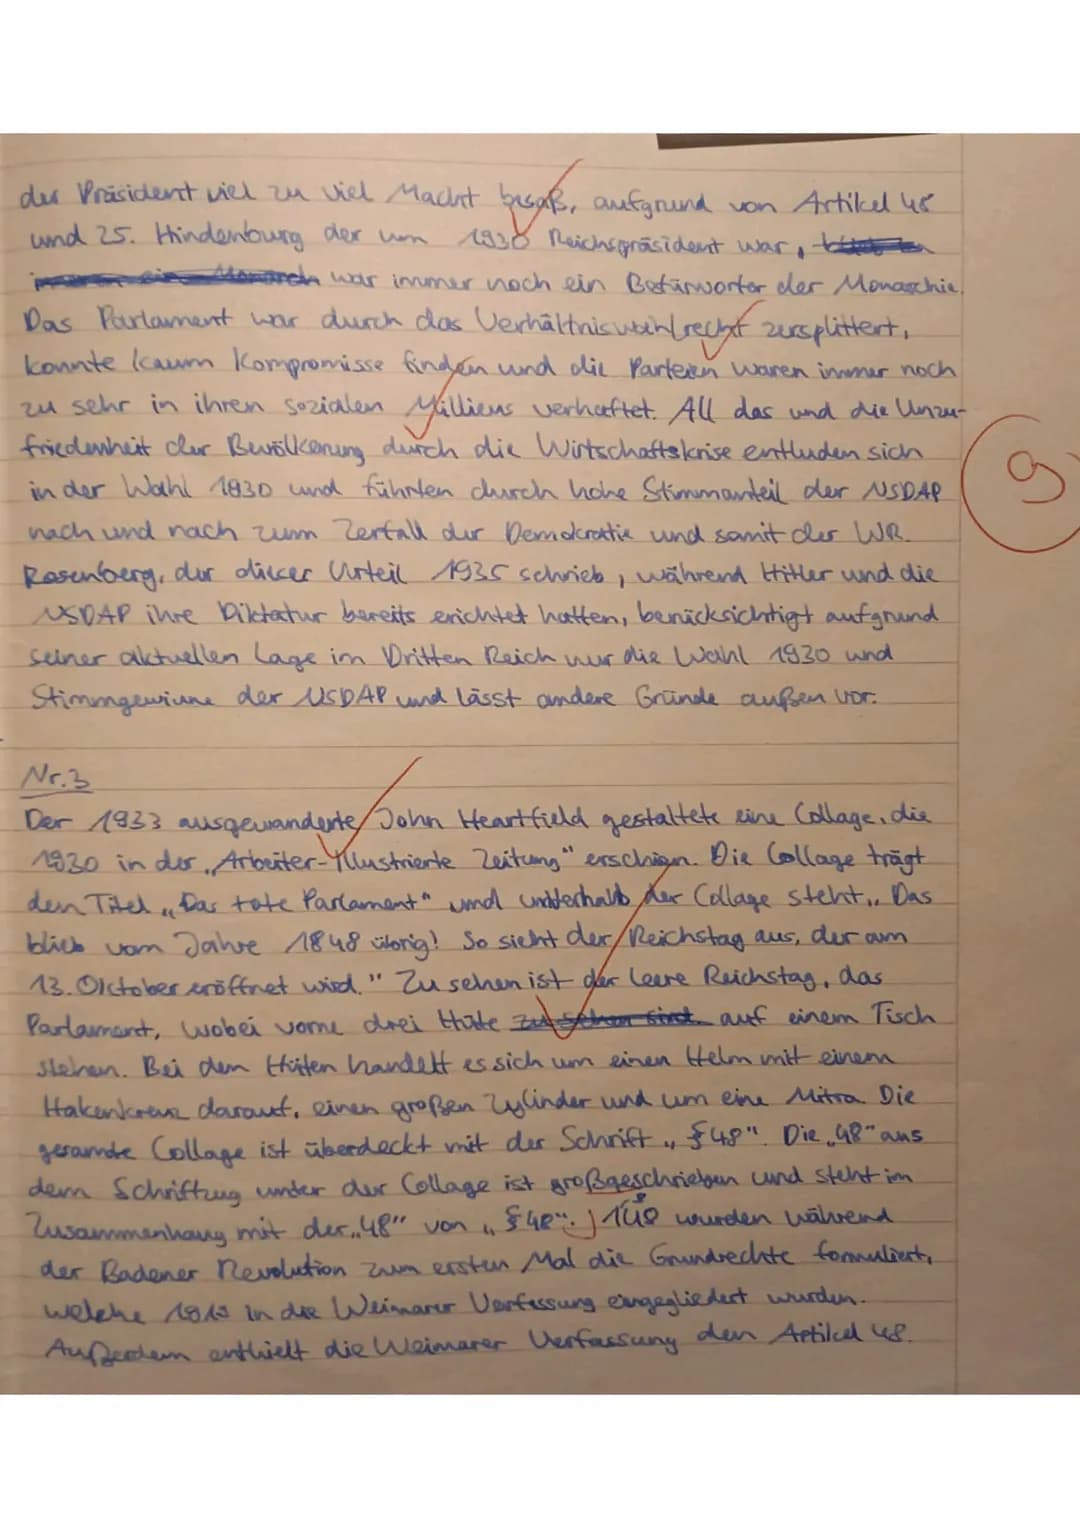 der Präsident viel zu viel Macht besaß, aufgrund von Artikel 48
und 25. Hindenburg der um 1930 Reichspräsident war,
war immer noch ein Befürworter der Monarchie.
Das Parlament war durch das Verhältniswahlrecht zersplittert,
konnte kaum Kompromisse finden und die Parteien waren immer noch
zu sehr in ihren sozialen Milliens verhaftet. All das und die Unzu-
friedenheit der Bevölkerung durch die Wirtschaftskrise entluden sich
in der Wahl 1930 und führten durch hohe Stimmanteil der NSDAP
nach und nach zum Zerfall der Demokratie und somit der WR.
Rosenberg, der dieser Urteil 1935 schrieb, während Hitler und die
NSDAP ihre Diktatur bereits erichtet hatten, berücksichtigt aufgrund
seiner aktuellen Lage im Dritten Reich nur die Wahl 1930 und
Stimmgewinne der NSDAP und lässt andere Gründe außen vor.
9
Nr.3
Der 1933 ausgewanderte John Heartfield gestaltete eine Collage, die
1930 in der „Arbeiter-Illustrierte Zeitung" erschien. Die Collage trägt
den Titel „Das tote Parlament" und unterhalb der Collage steht „Das
blieb vom Jahre 1848 übrig! So sieht der Reichstag aus, der am
13. Oktober eröffnet wird." Zu sehen ist der leere Reichstag, das
Parlament, wobei vorne drei Hüte auf einem Tisch
stehen. Bei den Hüten handelt es sich um einen Helm mit einem
Hakenkreuz darauf, einen großen Zylinder und um eine Mitra. Die
gesamte Collage ist überdeckt mit der Schrift „§48". Die „48" aus
dem Schriftzug unter der Collage ist großgeschrieben und steht im
Zusammenhang mit der „48" von „§48". 1848 wurden während
der Badener Revolution zum ersten Mal die Grundrechte formuliert,
welche 1919 in die Weimarer Verfassung eingegliedert wurden.
Außerdem enthielt die Weimarer Verfassung den Artikel 48.